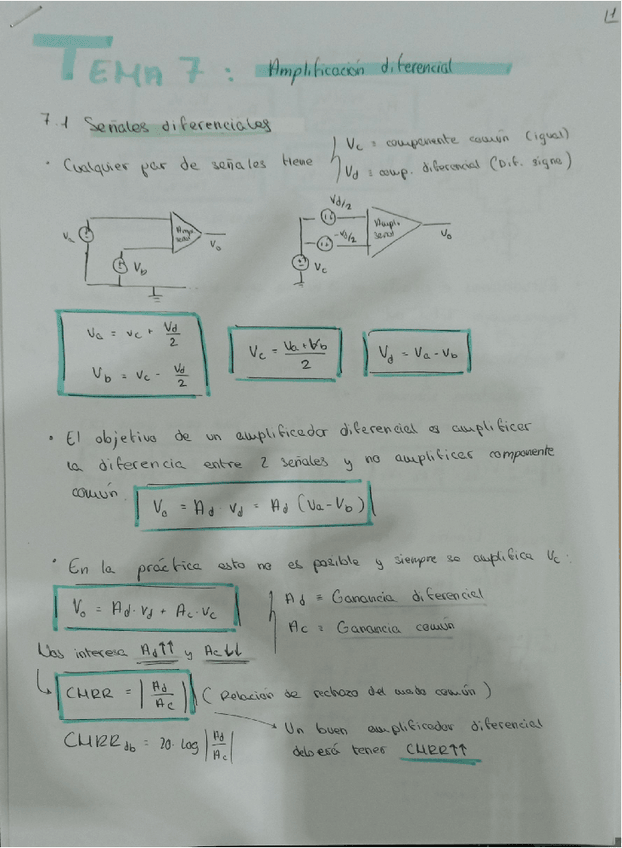 1
TEMA 7: Amplificación diferencial
7.1 Señales diferenciales
· Cualquier par de señales tiene
Vc = componente común (igual)
Vd = comp. diferencial (Dif. signo)
Va
Vb
Vo
Vd/2
-Vd/2
Vc
Ampli. señal
Vo
Va = Vc + Vd/2
Vb = Vc - Vd/2
Vc = (Va + Vb)/2
Vd = Va - Vb
· El objetivo de un amplificador diferencial es amplificar
la diferencia entre 2 señales y no amplificar componente
común.
Vo = Ad · Vd = Ad (Va - Vb)
· En la práctica esto no es posible y siempre se amplifica Vc:
Vo = Ad · Vd + Ac · Vc
Ad = Ganancia diferencial
Ac = Ganancia común
Nos interesa Ad↑↑ y Ac↓↓
CMRR = |Ad/Ac| (Relación de rechazo del modo común)
CMRRdb = 20 · log |Ad/Ac|
Un buen amplificador diferencial
deberá tener CMRR↑↑